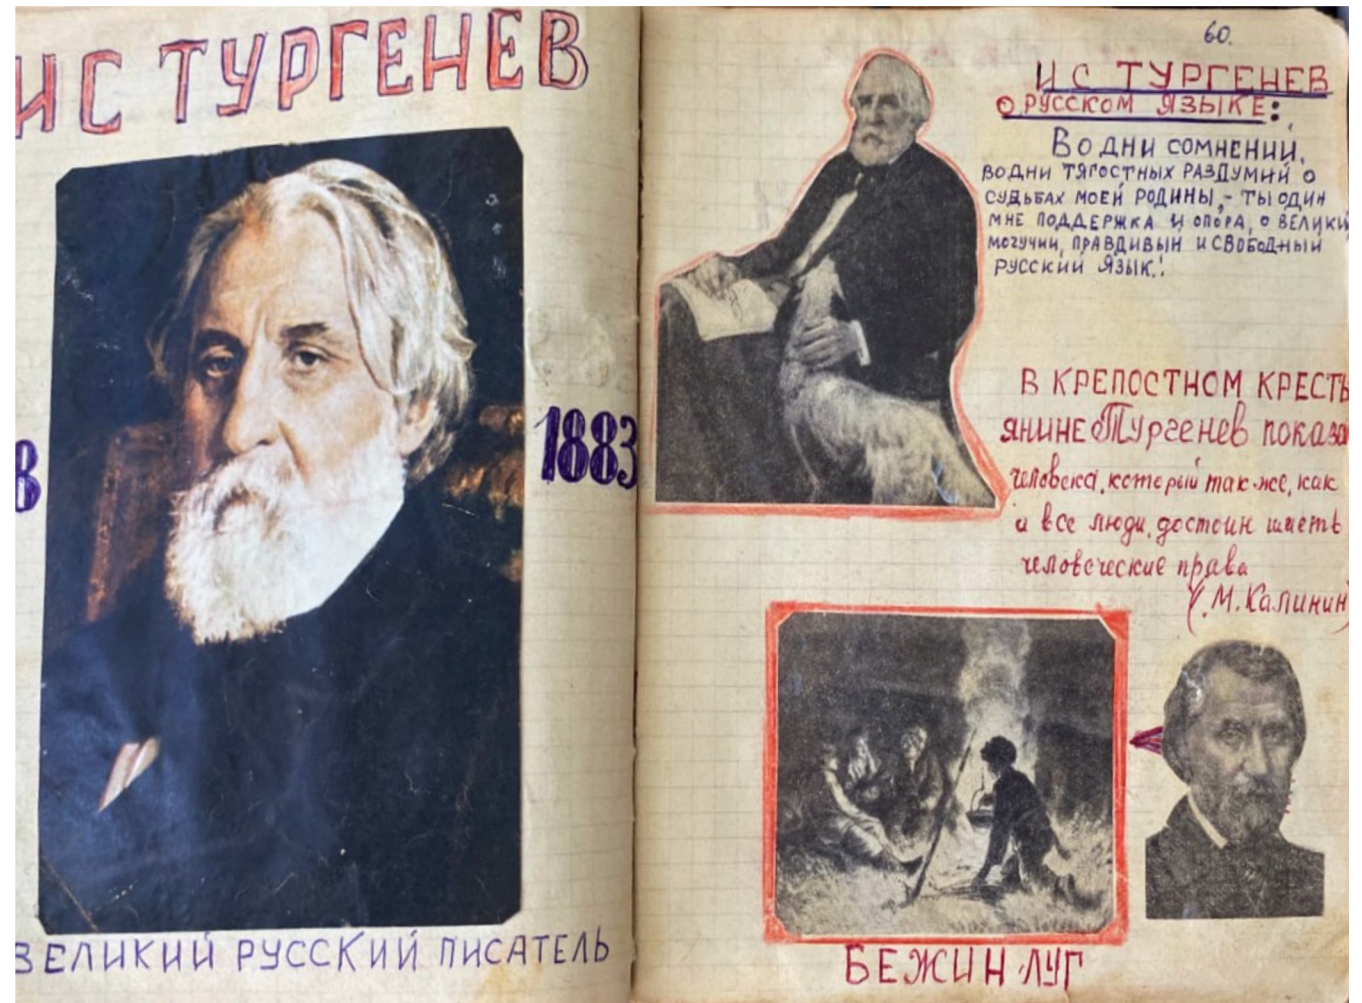 И С ТУРГЕНЕВ
8
1883
ВЕЛИКИЙ РУССКИЙ ПИСАТЕЛЬ
60.
И С ТУРГЕНЕВ
О РУССКОМ ЯЗЫКЕ:
ВО ДНИ СОМНЕНИЙ,
ВО ДНИ ТЯГОСТНЫХ РАЗДУМИЙ О
СУДЬБАХ МОЕЙ РОДИНЫ,- ТЫ ОДИН
МНЕ ПОДДЕРЖКА И ОПОРА, О ВЕЛИКИ
МОГУЧИЙ, ПРАВДИВЫЙ И СВОБОДНЫЙ
РУССКИЙ ЯЗЫК!
В КРЕПОСТНОМ КРЕСТЬ
ЯНИНЕ Тургенев показа
человека, который так же, как
и все люди, достоин иметь
человеческие права
(М. Калинин)
БЕЖИН ЛУГ